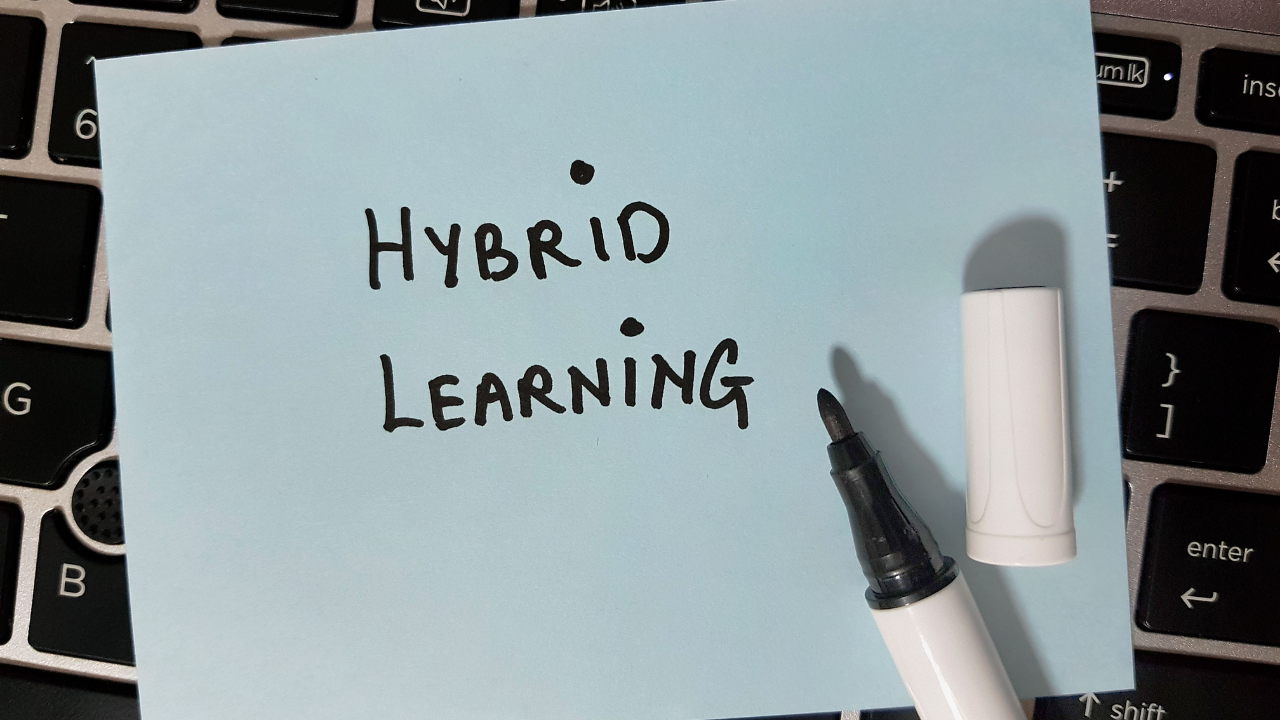 HYBRiD
LEARNiNG
6
G
B
um lk
inse
+
=
}
]
enter
shift